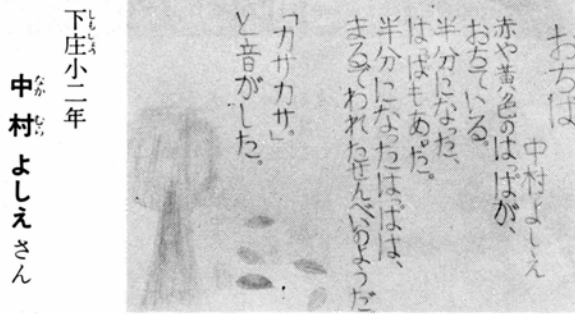 おちば
中村よしえ
赤や黄色のはっぱが、
おちている。
半分になった、
はっぱもあった。
半分になったはっぱは、
まるでわれたせんべいのようだ
「カサカサ。」
と音がした。
下庄小二年
しもしょう
中村よしえさん
なかむら